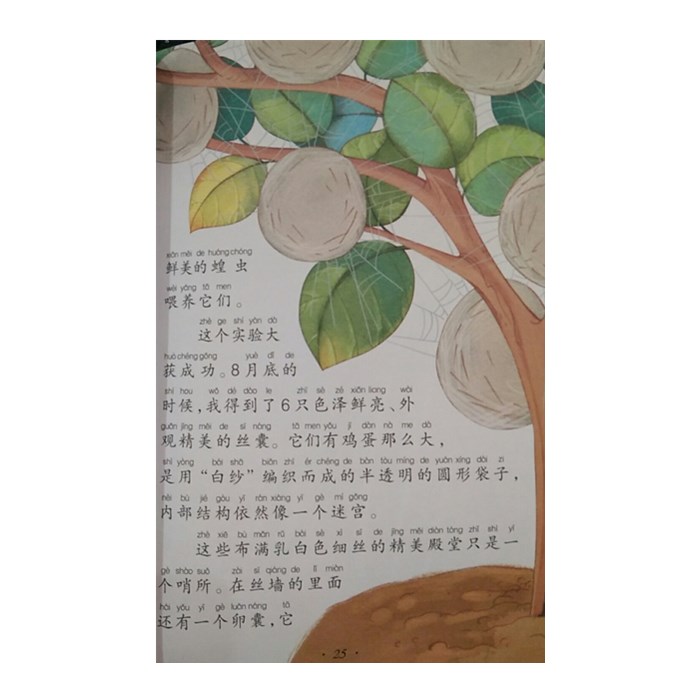 xiān měi de huáng chóng
鲜美的蝗虫
wèi yǎng tā men
喂养它们。
zhè ge shí yàn dà
这个实验大
huò chéng gōng yuè dǐ de
获成功。8月底的
shí hou wǒ dé dào le zhī sè zé xiān liang wài
时候，我得到了6只色泽鲜亮、外
guān jīng měi de sī náng tā men yǒu jī dàn nà me dà
观精美的丝囊。它们有鸡蛋那么大，
shì yòng bái shā biān zhī ér chéng de bàn tòu míng de yuán xíng dài zi
是用“白纱”编织而成的半透明的圆形袋子，
nèi bù jié gòu yī rán xiàng yí gè mí gōng
内部结构依然像一个迷宫。
zhè xiē bù mǎn rǔ bái sè xì sī de jīng měi diàn táng zhǐ shì yí
这些布满乳白色细丝的精美殿堂只是一
gè shào suǒ zài sī qiáng de lǐ miàn
个哨所。在丝墙的里面
hái yǒu yí gè luǎn náng tā
还有一个卵囊，它
· 25 ·